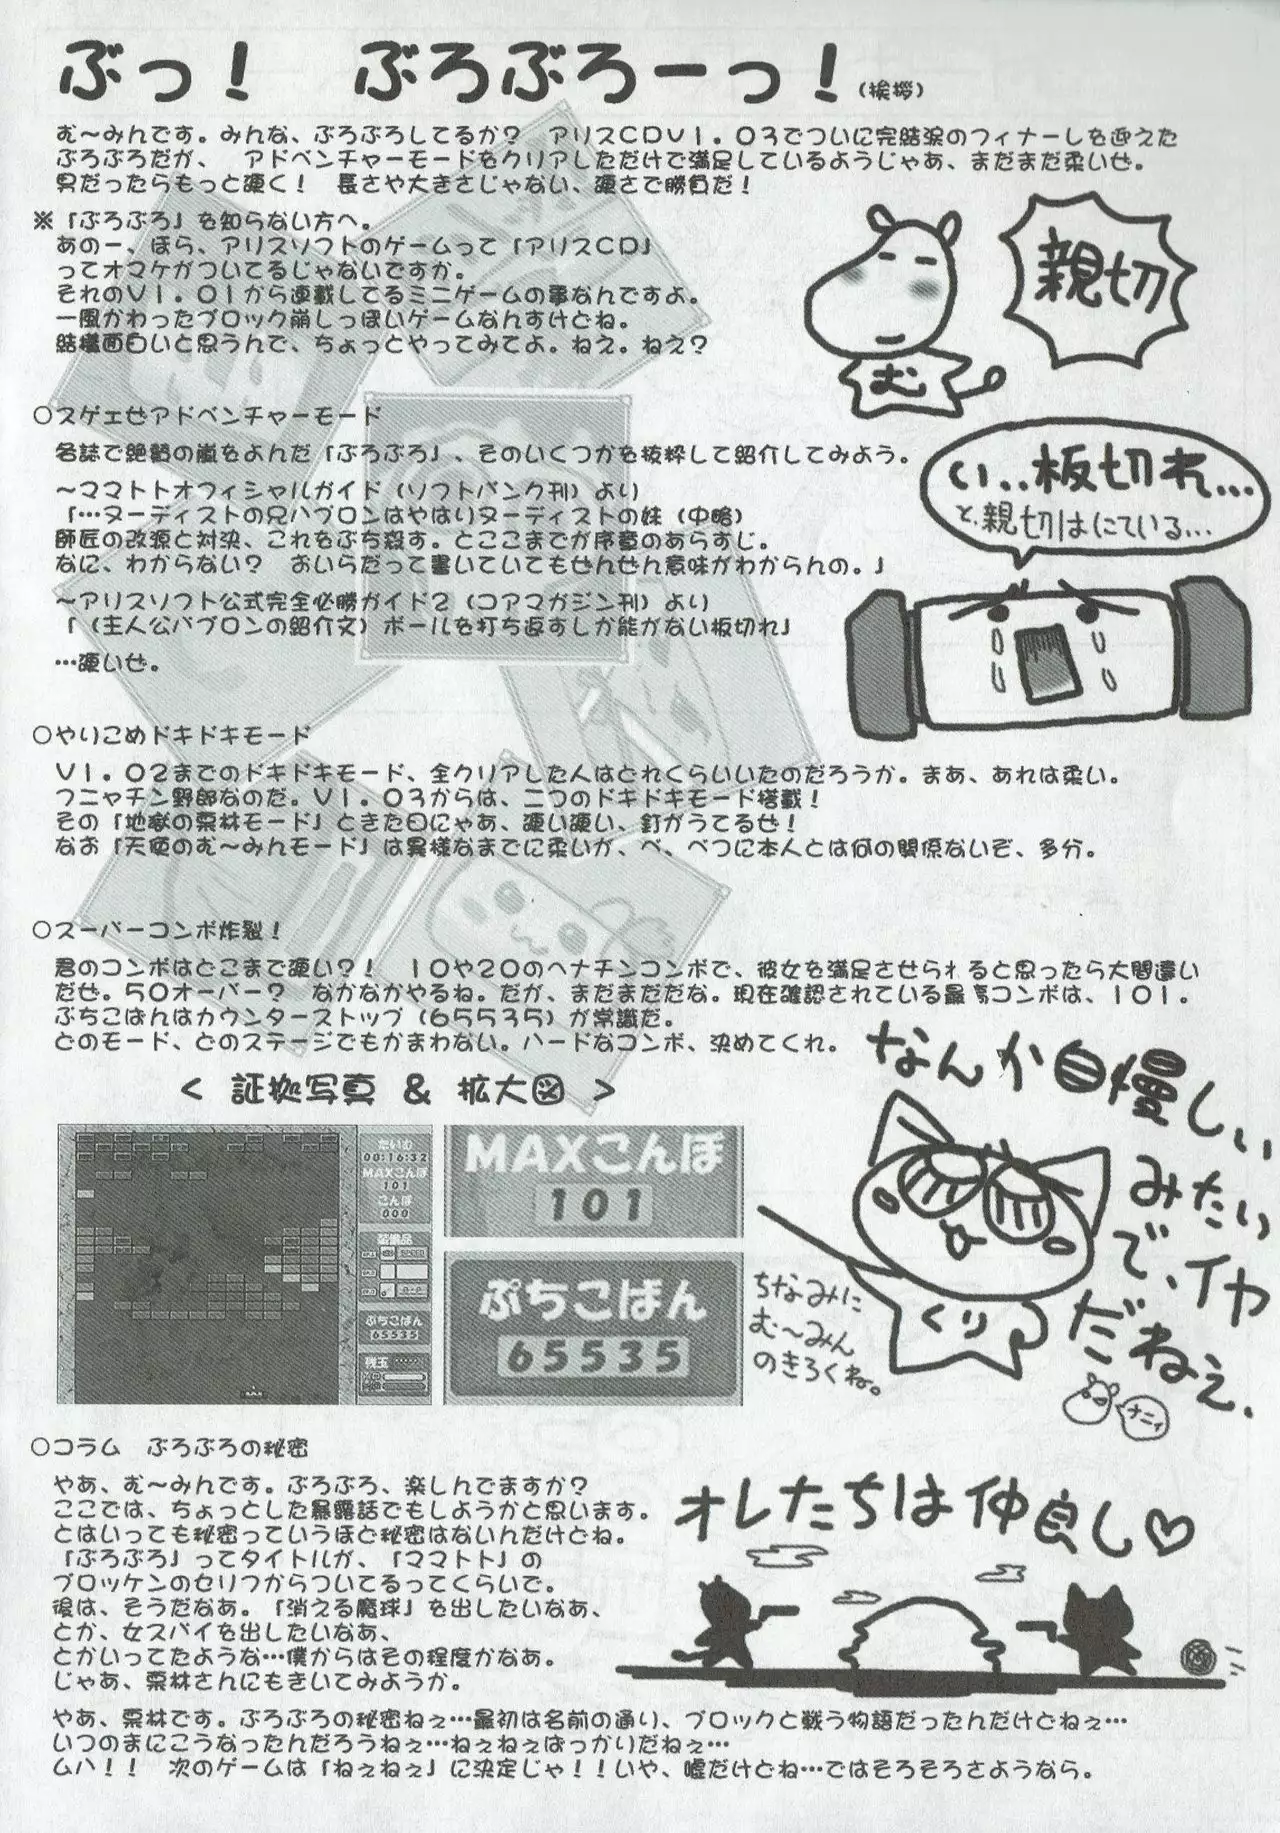 ぶっ！　ぶろぶろーっ！（挨拶）
む〜みんです。みんな、ぶろぶろしてるか？　アリスＣＤＶ１．０３でついに完結涙のフィナーレを迎えた
ぶろぶろだが、　アドベンチャーモードをクリアしただけで満足しているようじゃあ、まだまだ柔いぜ。
男だったらもっと硬く！　長さや大きさじゃない、硬さで勝負だ！
※「ぶろぶろ」を知らない方へ。
あのー、ほら、アリスソフトのゲームって「アリスＣＤ」
ってオマケがついてるじゃないですか。
それのＶ１．０１から連載してるミニゲームの事なんですよ。
一風かわったブロック崩しっぽいゲームなんすけどね。
結構面白いと思うんで、ちょっとやってみてよ。ねえ。ねえ？
親切
む
○スゲェぜアドベンチャーモード
各誌で絶賛の嵐をよんだ「ぶろぶろ」、そのいくつかを抜粋して紹介してみよう。
〜ママトトオフィシャルガイド（ソフトバンク刊）より
「…ヌーディストの兄ハブロンはやはりヌーディストの妹（中略）
師匠の改源と対決、これをぶち殺す。とここまでが序章のあらすじ。
なに、わからない？　おいらだって書いていてもぜんぜん意味がわからんの。」
〜アリスソフト公式完全必勝ガイド２（コアマガジン刊）より
「（主人公パブロンの紹介文）ボールを打ち返すしか能がない板切れ」
…硬いぜ。
い‥板切れ…
と、親切はにている…
○やりこめドキドキモード
Ｖ１．０２までのドキドキモード、全クリアした人はどれくらいいたのだろうか。まあ、あれは柔い。
フニャチン野郎なのだ。Ｖ１．０３からは、二つのドキドキモード搭載！
その「地獄の栗林モード」ときた日にゃあ、硬い硬い、釘がうてるぜ！
なお「天使のむ〜みんモード」は異様なまでに柔いが、べ、べつに本人とは何の関係ないぞ、多分。
○スーパーコンボ炸裂！
君のコンボはどこまで硬い？！　１０や２０のヘナチンコンボで、彼女を満足させられると思ったら大間違い
だぜ。５０オーバー？　なかなかやるね。だが、まだまだだな。現在確認されている最高コンボは、１０１．
ぷちこばんはカウンターストップ（６５５３５）が常識だ。
どのモード、どのステージでもかまわない。ハードなコンボ、決めてくれ。
＜ 証拠写真 ＆ 拡大図 ＞
たいむ
00:16:32
MAXこんぼ
101
こんぼ
000
装備品
ぷちこばん
65535
残玉
MAXこんぼ
101
ぷちこばん
65535
なんか自慢しぃ
みたい
で、イヤ
だねぇ、
くり
ちなみに
む〜みん
のきろくね。
ナニィ
○コラム　ぶろぶろの秘密
やあ、む〜みんです。ぶろぶろ、楽しんでますか？
ここでは、ちょっとした暴露話でもしようかと思います。
とはいっても秘密っていうほど秘密はないんだけどね。
「ぶろぶろ」ってタイトルが、「ママトト」の
ブロッケンのセリフからついてるってくらいで。
後は、そうだなあ。「消える魔球」を出したいなあ、
とか、女スパイを出したいなあ、
とかいってたような…僕からはその程度かなあ。
じゃあ、栗林さんにもきいてみようか。
オレたちは仲良し♡
やあ、栗林です。ぶろぶろの秘密ねぇ…最初は名前の通り、ブロックと戦う物語だったんだけどねぇ…
いつのまにこうなったんだろうねぇ…ねぇねぇばっかりだねぇ…
ムハ！！　次のゲームは「ねぇねぇ」に決定じゃ！！いや、嘘だけどね…ではそろそろさようなら。